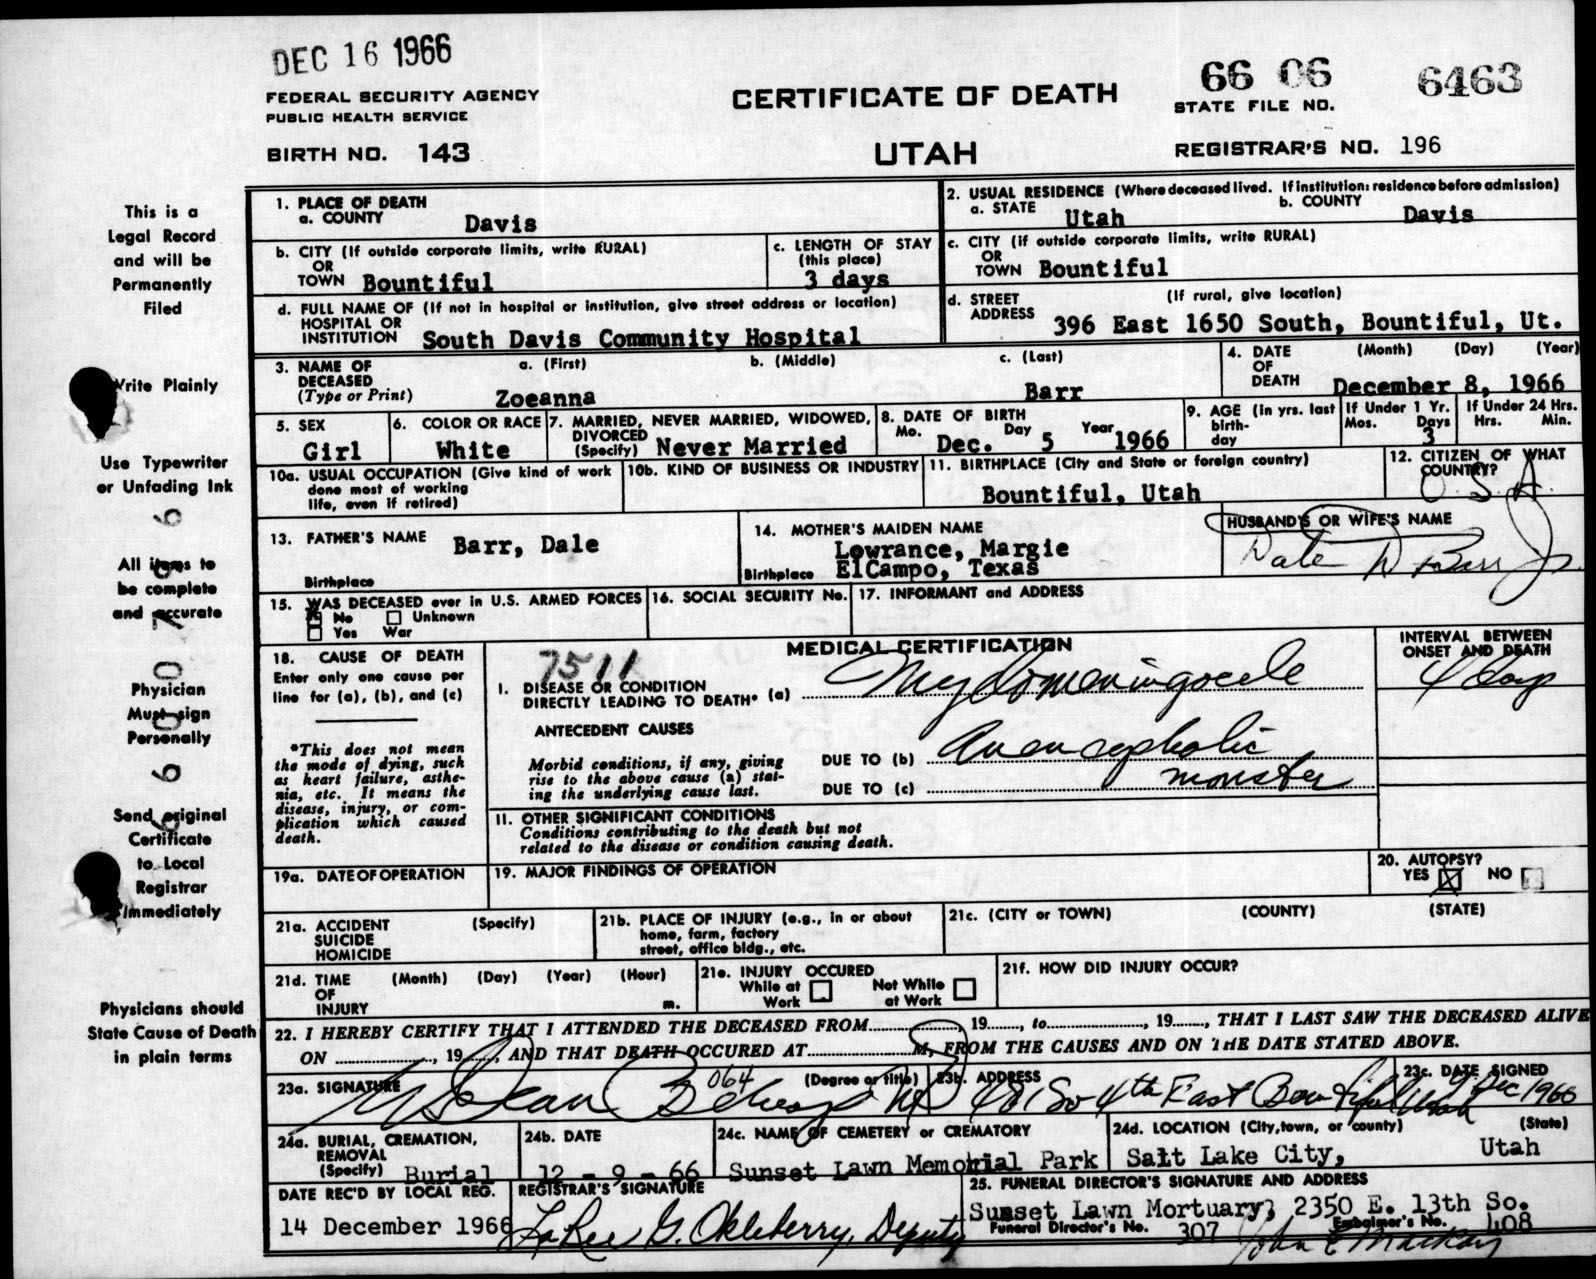 DEC 16 1966
FEDERAL SECURITY AGENCY
PUBLIC HEALTH SERVICE
BIRTH NO. 143
CERTIFICATE OF DEATH
UTAH
66 06 6463
STATE FILE NO.
REGISTRAR'S NO. 196
This is a
Legal Record
and will be
Permanently
Filed
Write Plainly
Use Typewriter
or Unfading Ink
All items to
be complete
and accurate
Physician
Must sign
Personally
Send original
Certificate
to Local
Registrar
Immediately
Physicians should
State Cause of Death
in plain terms
1. PLACE OF DEATH
a. COUNTY Davis
2. USUAL RESIDENCE (Where deceased lived. If institution: residence before admission)
a. STATE Utah b. COUNTY Davis
b. CITY (If outside corporate limits, write RURAL)
OR
TOWN Bountiful
c. LENGTH OF STAY
(this place)
3 days
c. CITY (if outside corporate limits, write RURAL)
OR
TOWN Bountiful
d. FULL NAME OF (If not in hospital or institution, give street address or location)
HOSPITAL OR
INSTITUTION South Davis Community Hospital
d. STREET (If rural, give location)
ADDRESS 396 East 1650 South, Bountiful, Ut.
3. NAME OF a. (First) b. (Middle) c. (Last)
DECEASED
(Type or Print) Zoeanna Barr
4. DATE (Month) (Day) (Year)
OF
DEATH December 8, 1966
5. SEX
Girl
6. COLOR OR RACE
White
7. MARRIED, NEVER MARRIED, WIDOWED,
DIVORCED
(Specify) Never Married
8. DATE OF BIRTH
Mo. Day Year
Dec. 5 1966
9. AGE (in yrs. last
birth-
day
If Under 1 Yr.
Mos. Days
3
If Under 24 Hrs.
Hrs. Min.
10a. USUAL OCCUPATION (Give kind of work
done most of working
life, even if retired)
10b. KIND OF BUSINESS OR INDUSTRY
11. BIRTHPLACE (City and State or foreign country)
Bountiful, Utah
12. CITIZEN OF WHAT
COUNTRY?
U.S.A.
13. FATHER'S NAME Barr, Dale
Birthplace
14. MOTHER'S MAIDEN NAME
Lowrance, Margie
Birthplace ElCampo, Texas
HUSBAND'S OR WIFE'S NAME
Dale D Barr Jr.
15. WAS DECEASED ever in U.S. ARMED FORCES
No Unknown
Yes War
16. SOCIAL SECURITY No.
17. INFORMANT and ADDRESS
18. CAUSE OF DEATH
Enter only one cause per
line for (a), (b), and (c)
*This does not mean
the mode of dying, such
as heart failure, asthe-
nia, etc. It means the
disease, injury, or com-
plication which caused
death.
MEDICAL CERTIFICATION
7511
I. DISEASE OR CONDITION
DIRECTLY LEADING TO DEATH* (a) Myelomeningocele
INTERVAL BETWEEN
ONSET AND DEATH
4 days
ANTECEDENT CAUSES
Morbid conditions, if any, giving
rise to the above cause (a) stat-
ing the underlying cause last.
DUE TO (b) Anencephalic
monster
DUE TO (c)
11. OTHER SIGNIFICANT CONDITIONS
Conditions contributing to the death but not
related to the disease or condition causing death.
19a. DATE OF OPERATION
19. MAJOR FINDINGS OF OPERATION
20. AUTOPSY?
YES NO
21a. ACCIDENT (Specify)
SUICIDE
HOMICIDE
21b. PLACE OF INJURY (e.g., in or about
home, farm, factory
street, office bldg., etc.
21c. (CITY or TOWN) (COUNTY) (STATE)
21d. TIME (Month) (Day) (Year) (Hour)
OF
INJURY m.
21e. INJURY OCCURED
While at Work
Not While at Work
21f. HOW DID INJURY OCCUR?
22. I HEREBY CERTIFY THAT I ATTENDED THE DECEASED FROM, 19, to, 19, THAT I LAST SAW THE DECEASED ALIVE
ON, 19, AND THAT DEATH OCCURED AT M, FROM THE CAUSES AND ON THE DATE STATED ABOVE.
23a. SIGNATURE 064 (Degree or title)
Dean MD
23b. ADDRESS
481 So 4th East Bountiful Utah
23c. DATE SIGNED
9 Dec 1966
24a. BURIAL, CREMATION,
REMOVAL
(Specify) Burial
24b. DATE
12 - 9 - 66
24c. NAME OF CEMETERY or CREMATORY
Sunset Lawn Memorial Park
24d. LOCATION (City, town, or county) (State)
Salt Lake City, Utah
DATE REC'D BY LOCAL REG.
14 December 1966
REGISTRAR'S SIGNATURE
LaRee G. Okleberry, Deputy
25. FUNERAL DIRECTOR'S SIGNATURE AND ADDRESS
Sunset Lawn Mortuary, 2350 E. 13th So.
Funeral Director's No. 307 Embalmer's No. 408
John E Mackay